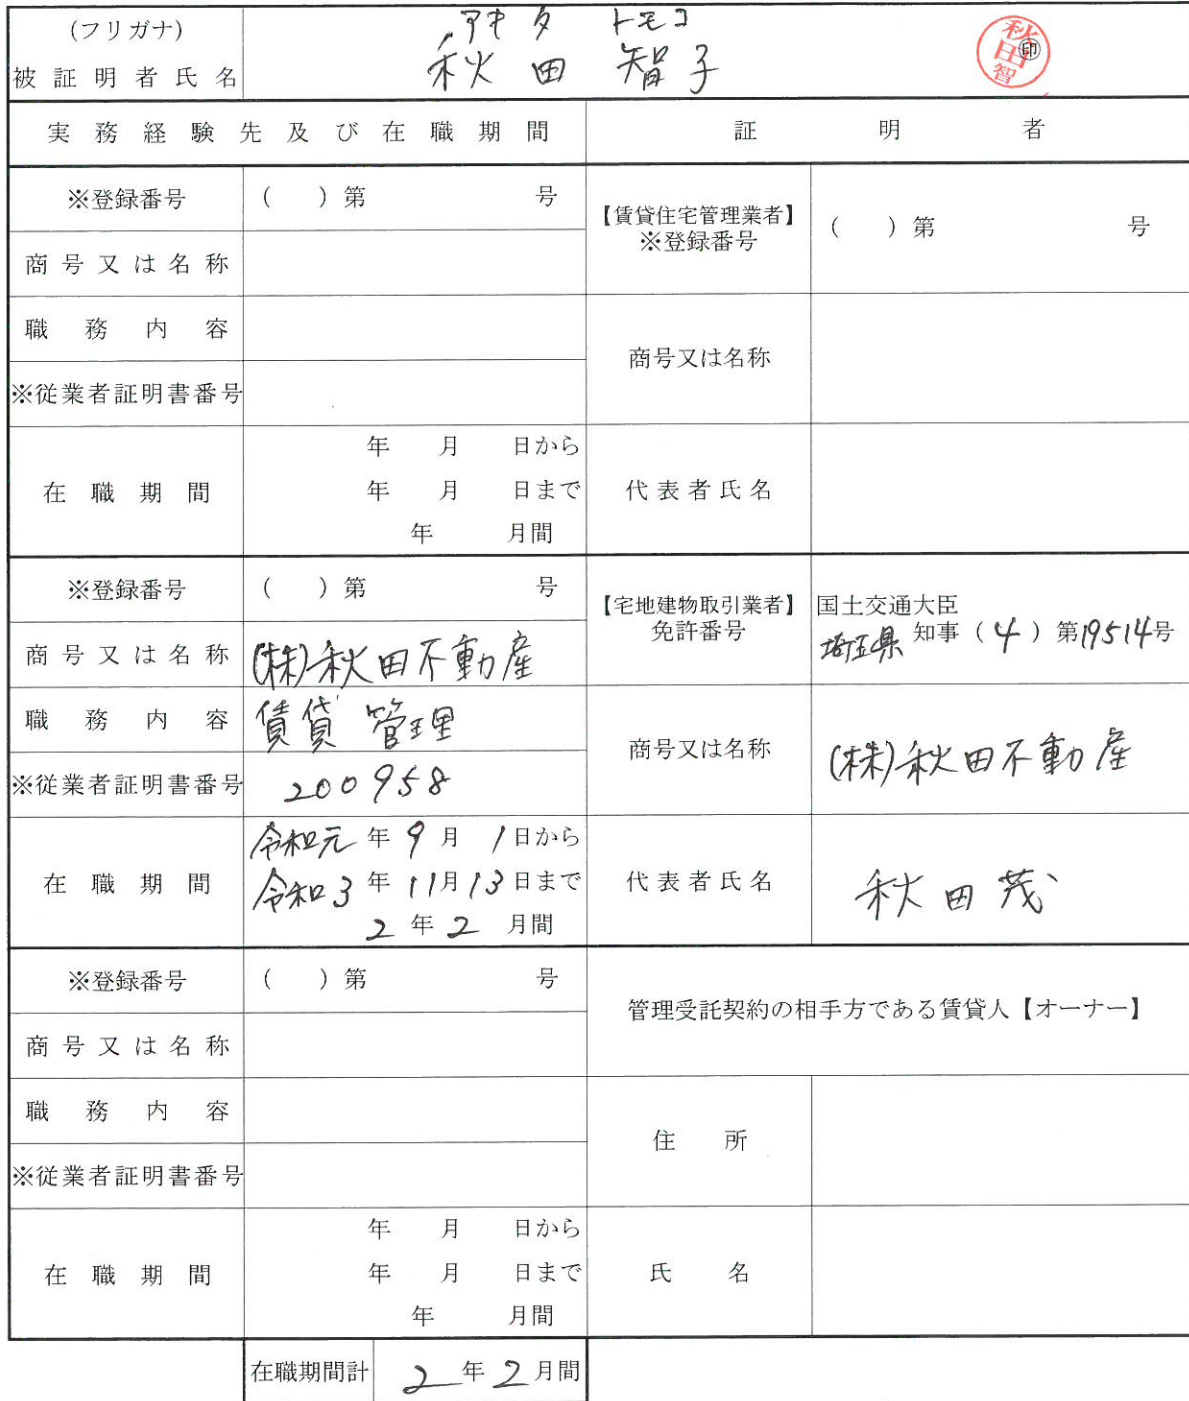 (フリガナ) アキタ トモコ
被証明者氏名 秋田 智子 ㊞
秋田智
実務経験先及び在職期間 証明者
※登録番号 ( ) 第 号
【賃貸住宅管理業者】
※登録番号 ( ) 第 号
商号又は名称
職務内容
商号又は名称
※従業者証明書番号
年 月 日から
在職期間 年 月 日まで
年 月間
代表者氏名
※登録番号 ( ) 第 号
【宅地建物取引業者】
免許番号
国土交通大臣
埼玉県 知事 ( 4 ) 第19514号
商号又は名称 (株)秋田不動産
職務内容 賃貸 管理
商号又は名称 (株)秋田不動産
※従業者証明書番号 200958
令和元 年 9 月 1 日から
在職期間 令和3 年 11月 13 日まで
2 年 2 月間
代表者氏名 秋田 茂
※登録番号 ( ) 第 号
管理受託契約の相手方である賃貸人【オーナー】
商号又は名称
職務内容
住所
※従業者証明書番号
年 月 日から
在職期間 年 月 日まで
年 月間
氏名
在職期間計 2 年 2 月間